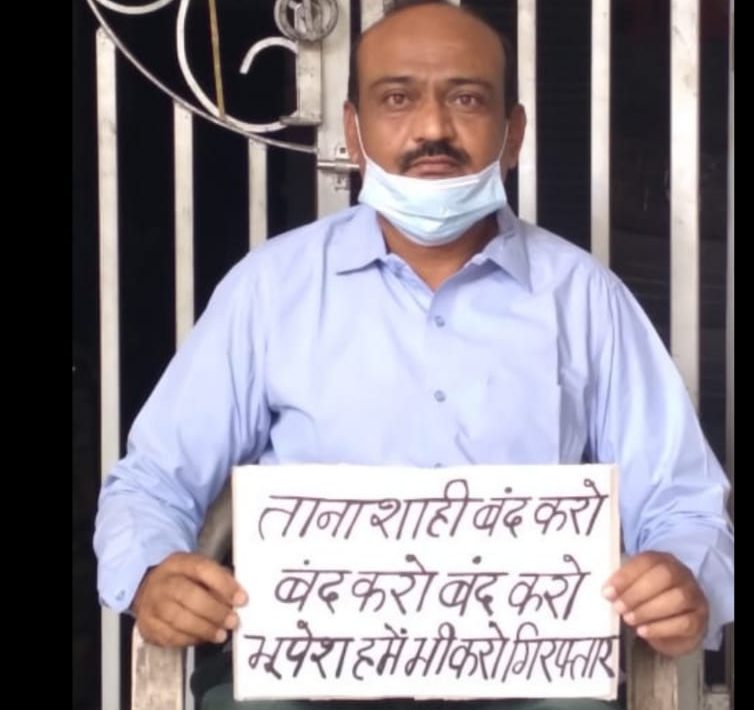 तानाशाही बंद करो
बंद करो बंद करो
भूपेश हमें भी करो गिरफ्तार